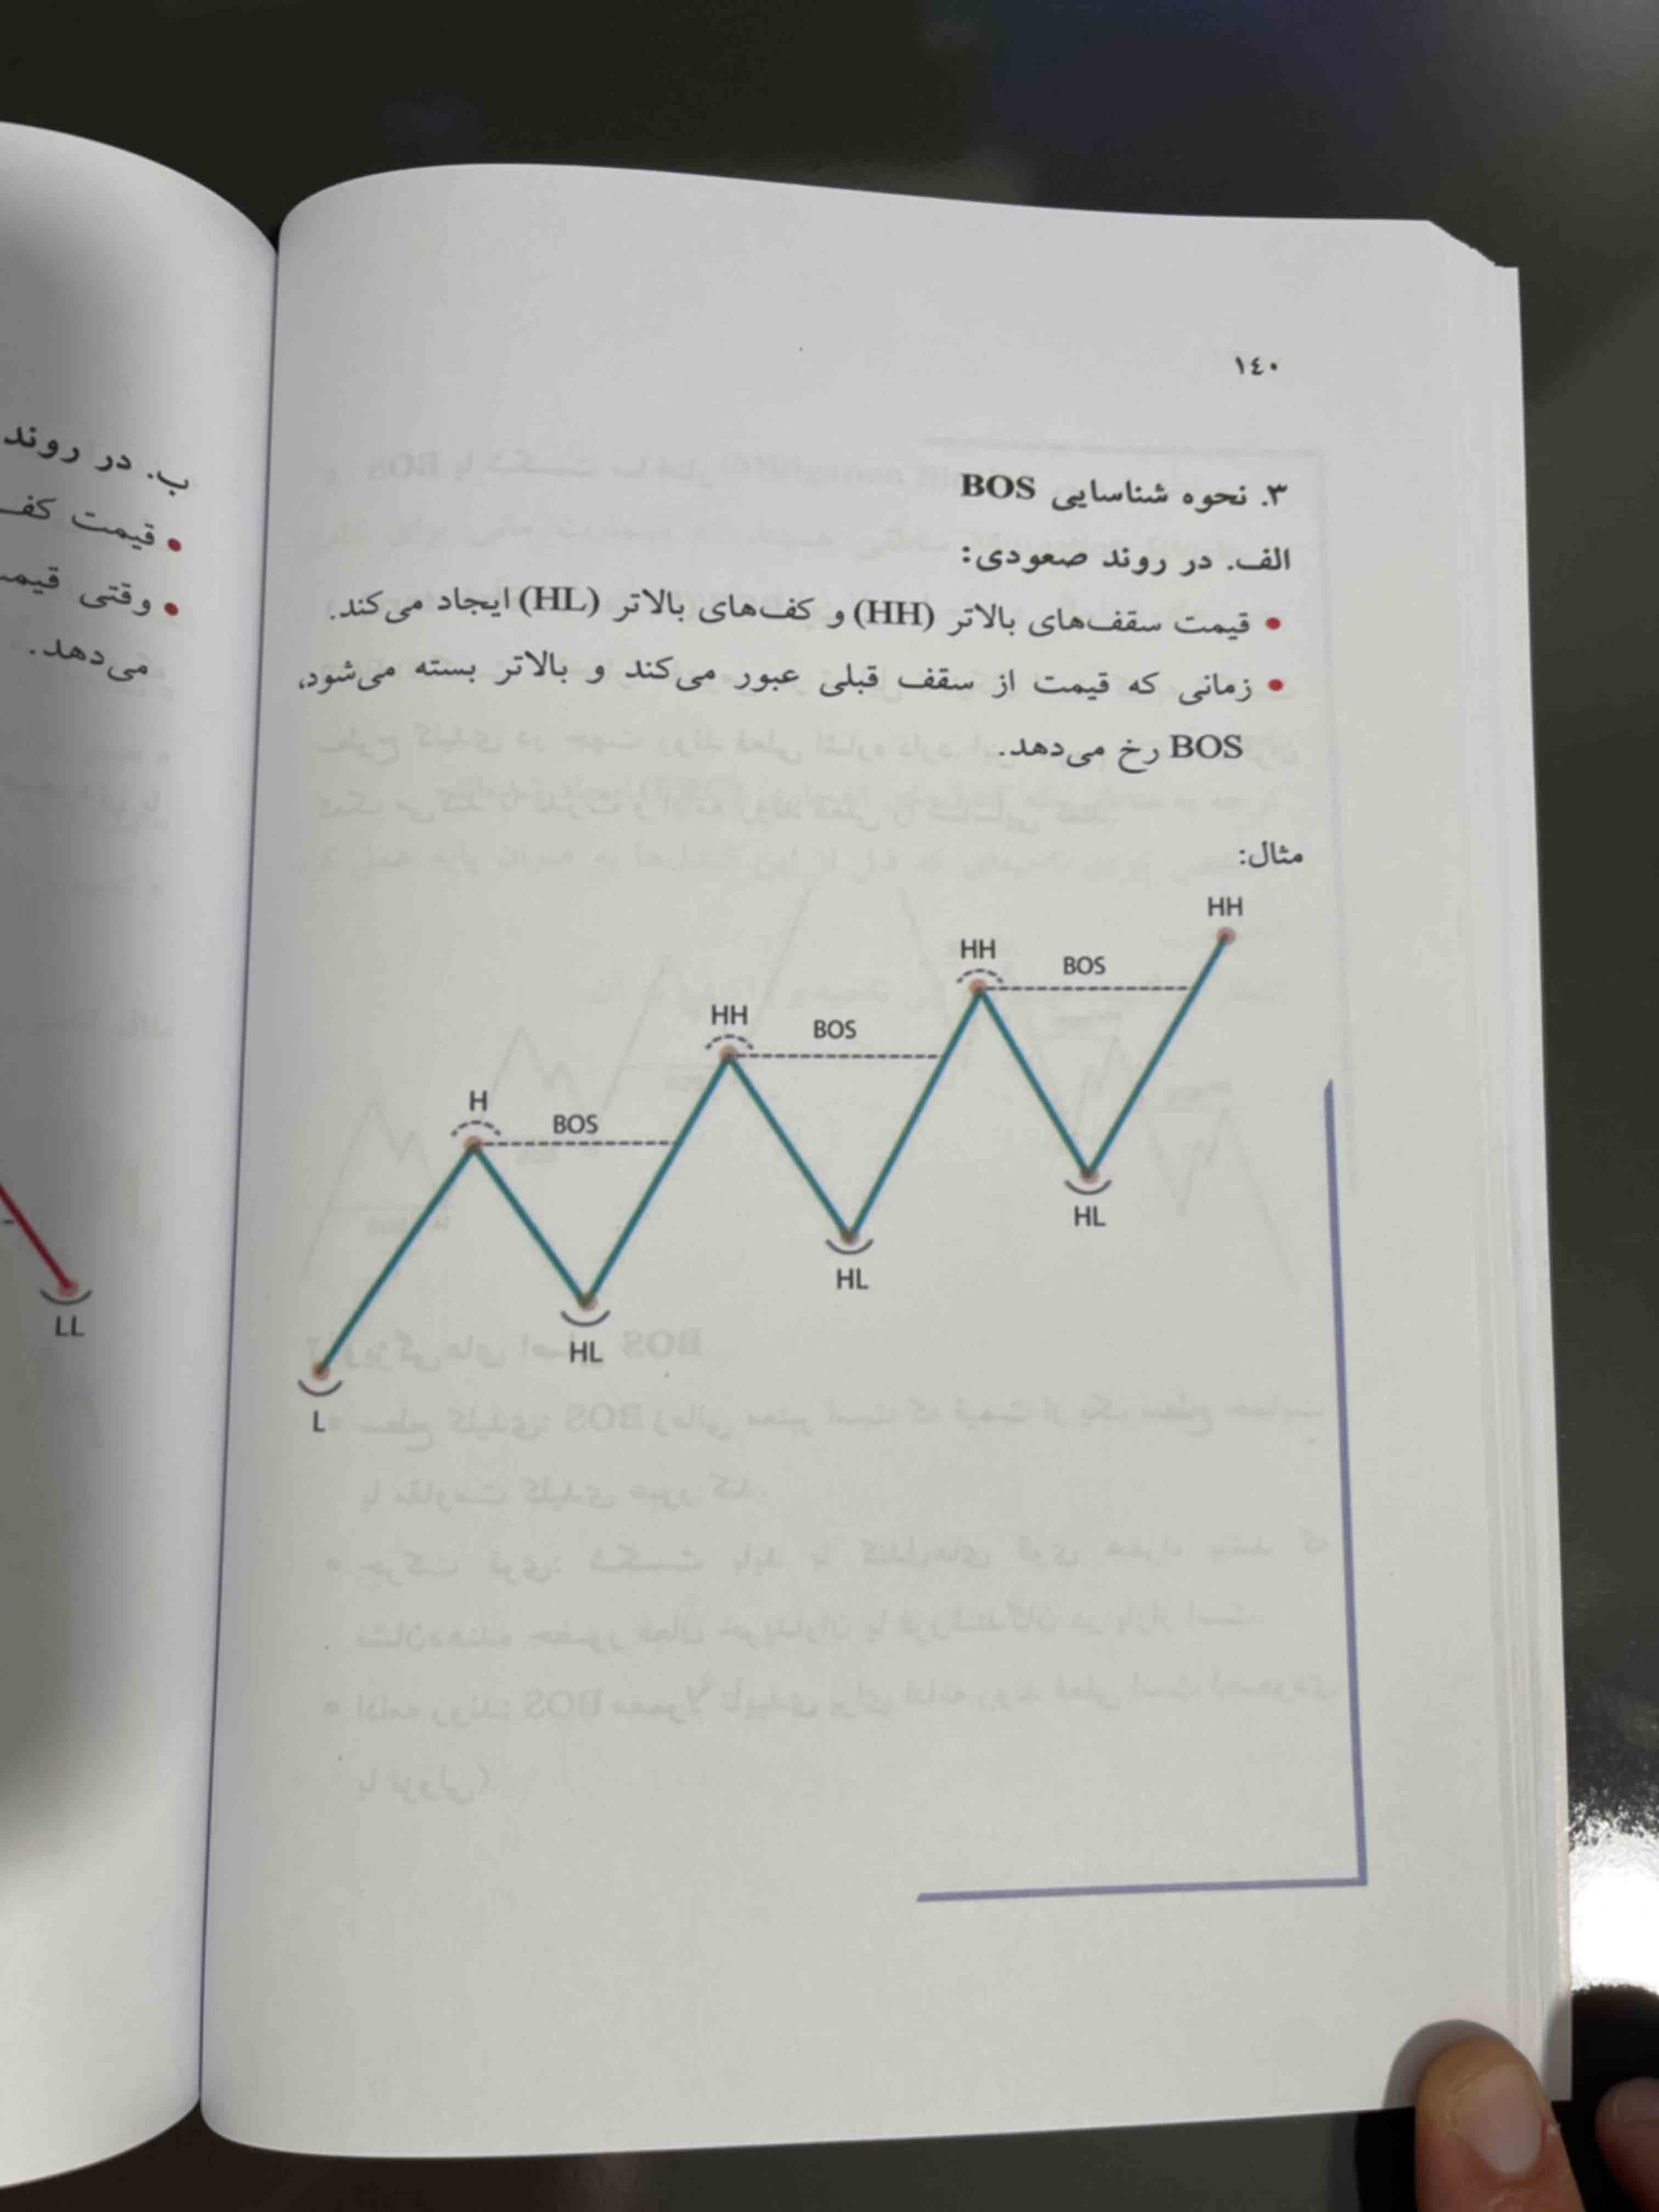 ١٤٠
۳. نحوه شناسایی BOS
الف. در روند صعودی:
• قیمت سقف‌های بالاتر (HH) و کف‌های بالاتر (HL) ایجاد می‌کند.
• زمانی که قیمت از سقف قبلی عبور می‌کند و بالاتر بسته می‌شود،
BOS رخ می‌دهد.
مثال:
HH
HH
BOS
HH
BOS
H
BOS
HL
HL
HL
L
ب. در روند
• قیمت کف
• وقتی
می‌دهد.
LL